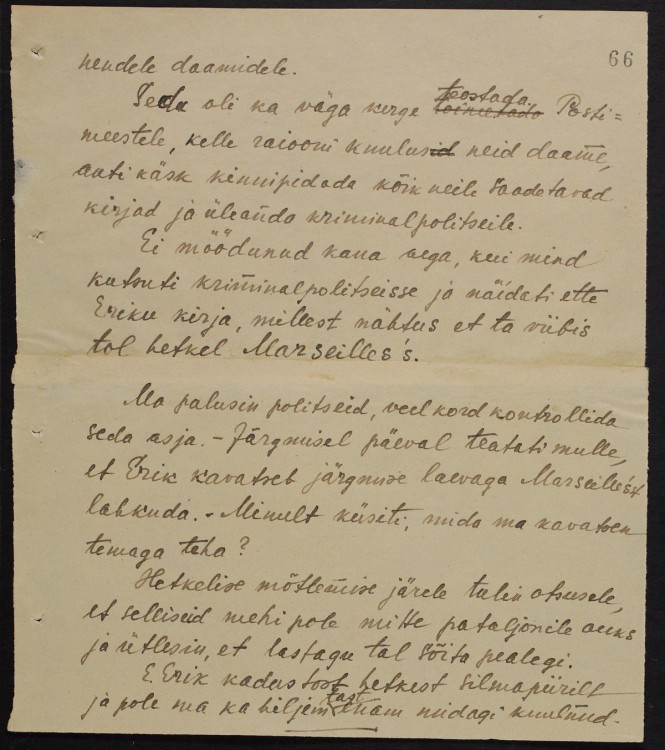 66
nendele daamidele.
Seda oli ka väga kerge teostada Posti=
meestele, kelle raiooni kuulusid neid daame,
anti käsk kinnipidada kõik neile saadetavad
kirjad ja üleanda kriminalpolitseile.
Ei möödunud kana aega, kui mind
kutsuti kriminalpolitseisse ja näidati ette
Eriku kirja, millest nähtus et ta viibis
tol hetkel Marseilles's.
Ma palusin politseid, veel kord kontrollida
seda asja. - Järgmisel päeval teatati mulle,
et Erik kavatseb järgmise laevaga Marseille'st
lahkuda. - Minult küsiti, mida ma kavatsen
temaga teha?
Hetkelise mõtlemise järele tulin otsusele,
et selliseid mehi pole mitte pataljonile auks
ja ütlesin, et lastagu tal sõita pealegi.
E. Erik kadus sest hetkest silmapiirilt
ja pole ma ka hiljem tast enam midagi kuulnud.